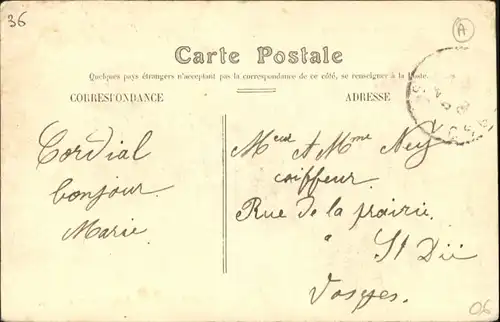 36
A
Carte Postale
Quelques pays étrangers n'acceptant pas la correspondance de ce côté, se renseigner à la Poste.
CORRESPONDANCE
ADRESSE
Cordial
bonjour
Marie
Meur et Mme Ney
coiffeur
Rue de la prairie
a St Dié
Vosges.
06